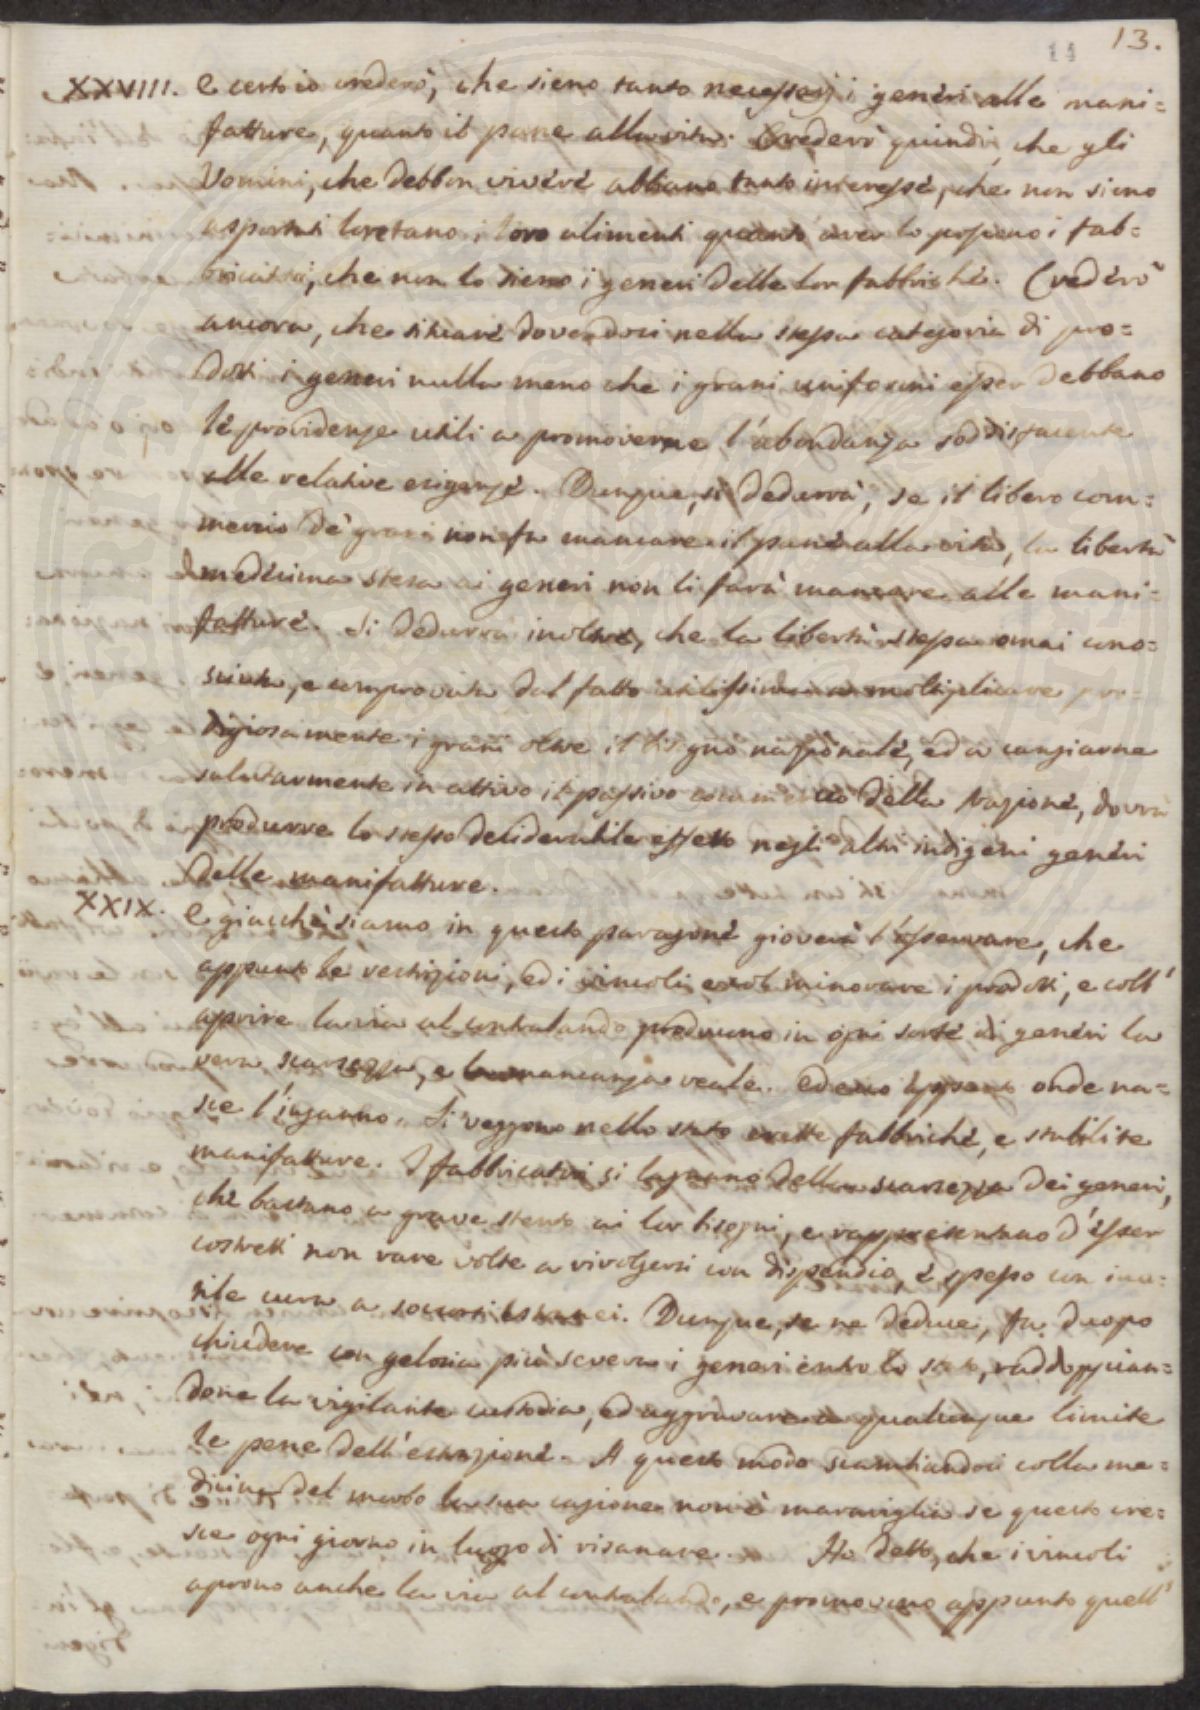 13.
11
XXVIII. E certo io crederò, che sieno tanto necessarj i generi alle mani=
fatture, quanto il pane alla vita. Crederò quindi, che gli
Uomini, che debbon vivere abbiano tanto interesse, che non sieno
asportati lontano i loro alimenti quanto aver lo possono i fab=
bricatori, che non lo sieno i generi delle lor fabbriche. Crederò
ancora, che situare dovendosi nella stessa categoria di pro=
dotti i generi nulla meno che i grani uniformi esser debbano
le providenze utili a promoverne l'abondanza soddisfacente
alle relative esigenze. Dunque, si dedurrà, se il libero com=
mercio de' grani non fa mancare il pane alla vita, la libertà
medesima stesa ai generi non li farà mancare alle mani=
fatture. Si dedurrà inoltre, che la libertà stessa omai cono=
sciuta, e comprovata dal fatto utilissima a moltiplicare pro=
digiosamente i grani oltre il bisogno nazionale, ed a cangiarne
salutarmente in attivo il passivo commercio della Nazione, dovrà
produrre lo stesso desiderabile effetto negli altri indigeni generi
delle manifatture.
XXIX. E giacchè siamo in questo paragone gioverà l'osservare, che
appunto le restrizioni, ed i vincoli col minorare i prodotti, e coll'
aprire la via al contrabando producono in ogni sorte di generi la
vera scarsezza, e la mancanza reale. Ed ecco appunto onde na=
sce l'inganno. Si veggono nello stato erette fabbriche, e stabilite
manifatture. I fabbricatori si lagnano della scarsezza dei generi,
che bastano a grave stento ai lor bisogni, e rappresentano d'esser
costretti non rare volte a rivolgersi con dispendio, e spesso con inu=
tile cura a soccorsi estranei. Dunque, se ne deduce, fa duopo
chiudere con gelosia più severa i generi entro lo stato, raddoppian=
done la vigilante custodia, ed aggravare a qualunque limite
le pene dell'estrazione. A questo modo scambiandosi colla me=
dicina del morbo la sua cagione non è maraviglia se questo cre=
sce ogni giorno in luogo di risanare. Ho detto, che i vincoli
aprono anche la via al contrabando, e promovono appunto quell'
digeni